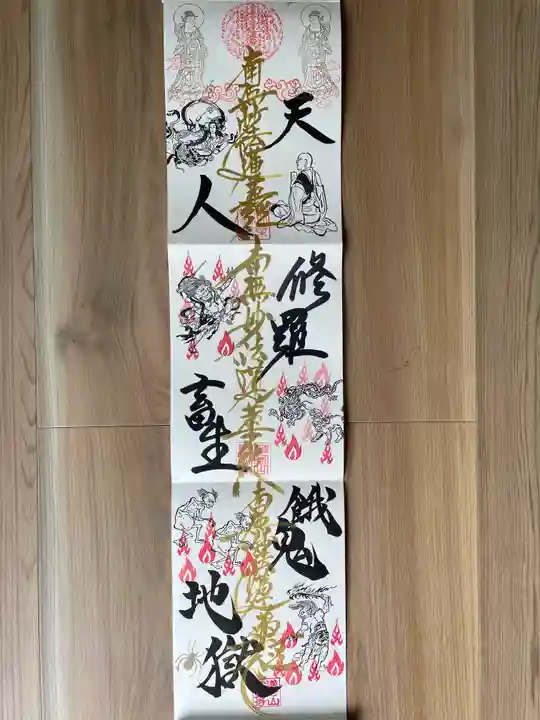 天
人
南無妙法蓮華経
修羅
畜生
南無妙法蓮華経
餓鬼
地獄
南無妙法蓮華経